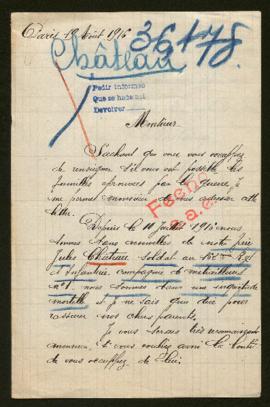 Paris 19 Août 1916
36178
Château
Pedir informes
Que se hade
Devolver
Monsieur
Sachant que vous vous occupez
de renseigner s'il vous est possible les
familles éprouvées par la guerre, je
me permet monsieur de vous adresser cette
lettre.
Depuis le 10 Juillet 1916 nous
sommes sans nouvelles de notre frère
Jules Château soldat au
d'Infanterie compagnie de mitrailleuses
n° 1, nous sommes dans une inquiétude
mortelle et je ne sais que dire pour
rassurer nos chers parents.
Je vous serais très reconnaissante
monsieur, si vous vouliez avoir la bonté
de vous occupez de lui.